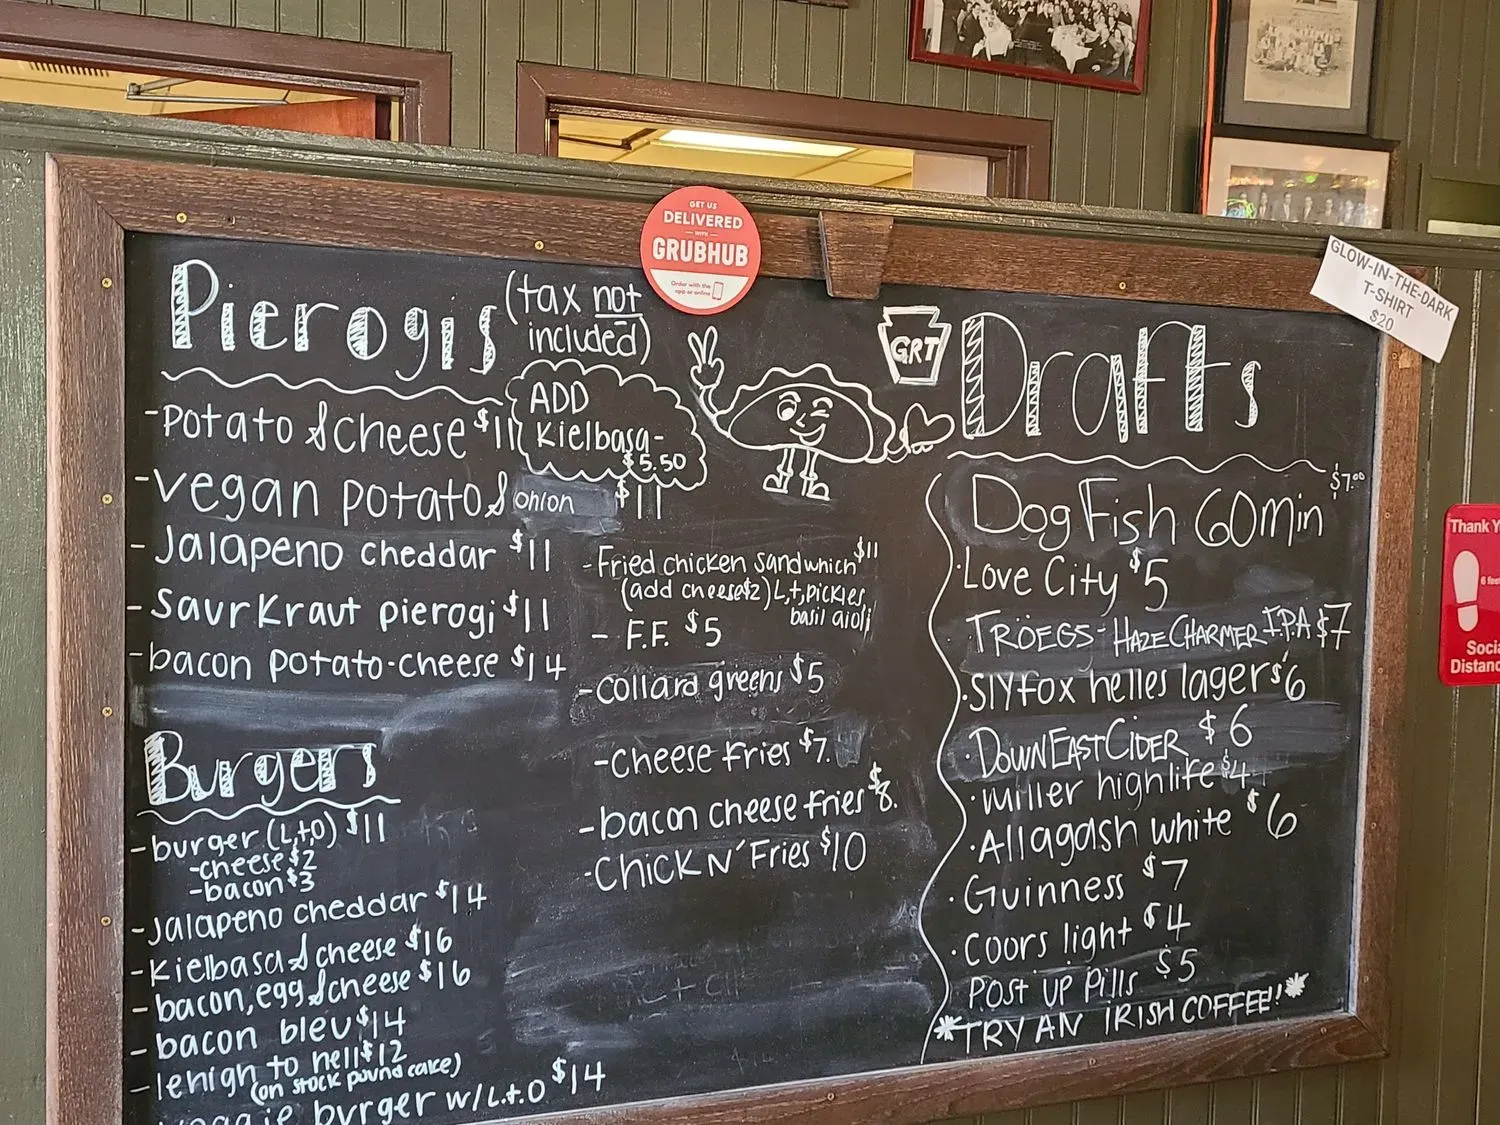 GET US
DELIVERED
WITH
GRUBHUB
Order with the
app or online
GLOW-IN-THE-DARK
T-SHIRT
$20
Pierogis (tax not
included)
ADD
Kielbasa-
$5.50
-Potato & cheese $11
-vegan potato & onion $11
-Jalapeno cheddar $11
-SaurKraut pierogi $11
-bacon potato-cheese $14
Burgers
-burger (L,t,O) $11
-cheese $2
-bacon $3
-Jalapeno cheddar $14
-Kielbasa & cheese $16
-bacon, egg & cheese $16
-bacon bleu $14
-lehigh to hell $12
(on stock pound cake)
veggie burger w/L.t.O $14
-Fried chicken sandwhich $11
(add cheese $2) L,t,pickles,
basil aioli
- F.F. $5
-collard greens $5
-cheese Fries $7.
-bacon cheese fries $8.
-CHICK N' Fries $10
GRT
Drafts
DogFish 60min $7.00
·Love City $5
TRÖEGS-HAZECHARMER I.P.A $7
·Slyfox helles lager $6
·DOWNEAST CIDER $6
·miller highlife $4
·Allagash white $6
·Guinness $7
·Coors light $4
POST UP Pills $5
*TRY AN IRISH COFFEE!!*
Thank Y
6 feet
Socia
Distanc